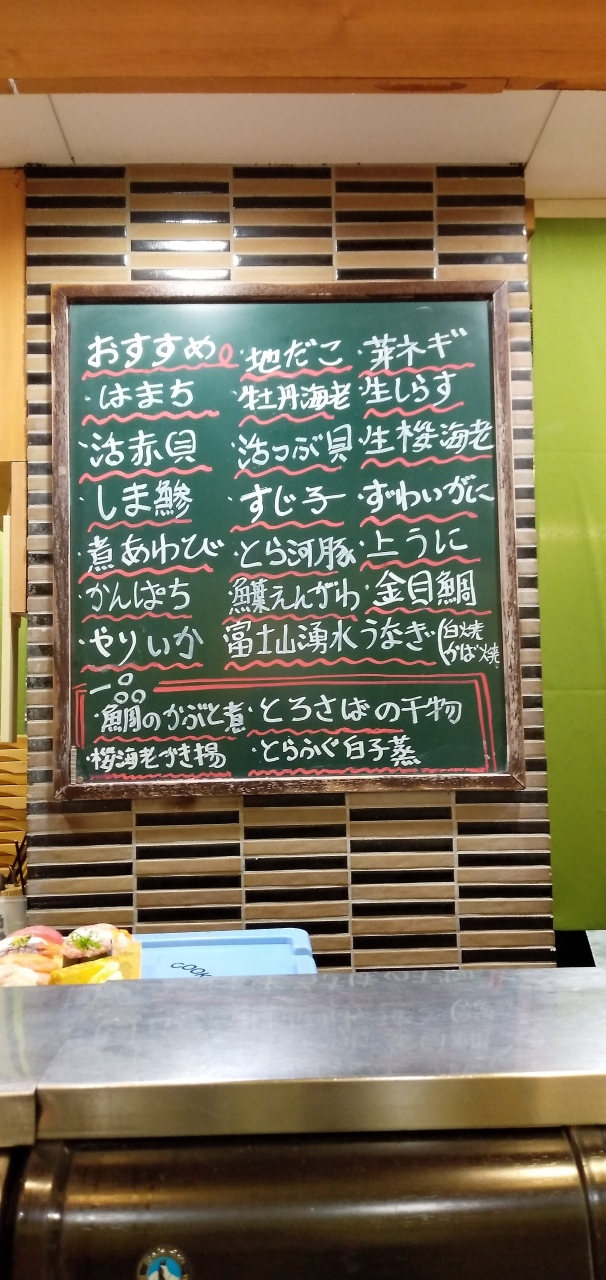 おすすめ
・はまち
・活赤貝
・しま鯵
・煮あわび
・かんぱち
・やりいか
・地だこ
・牡丹海老
・活つぶ貝
・すじ子
・とら河豚
・えんがわ
富士山湧水うなぎ(白焼 かば焼
・芽ネギ
・生しらす
・生桜海老
・ずわいがに
・上うに
・金目鯛
一品
・鯛のかぶと煮・とろさばの干物
・桜海老かき揚・とらふぐ白子蒸
COOK